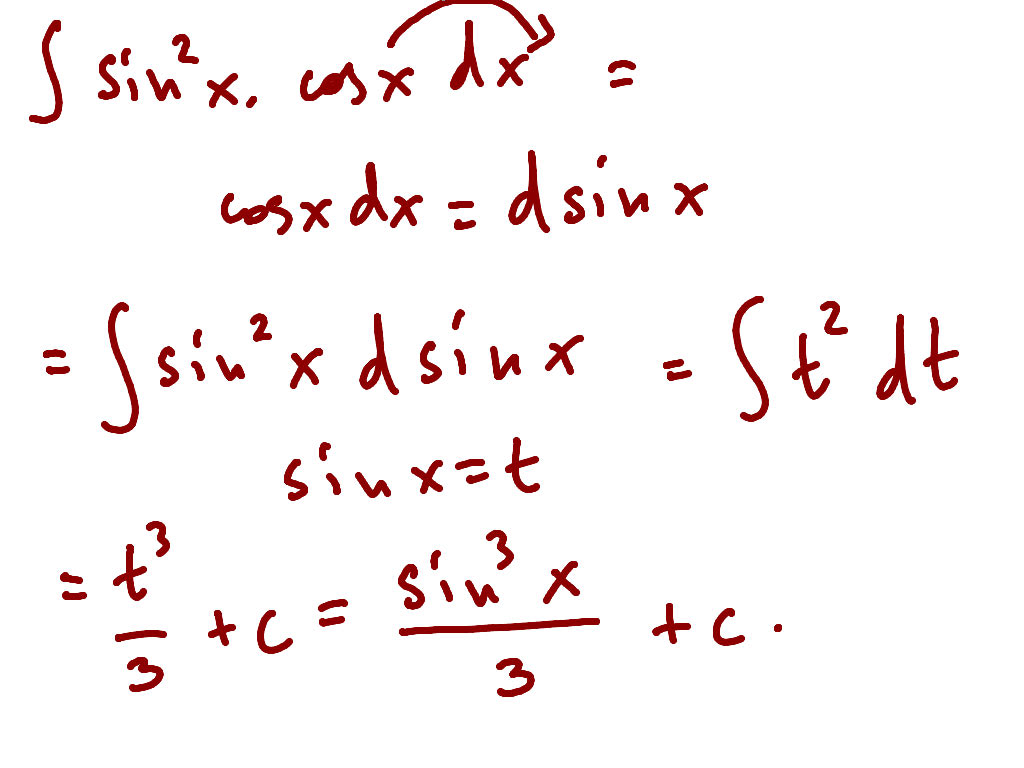 ∫ sin²x. cosx dx =
cosx dx = d sin x
= ∫ sin² x d sin x = ∫ t² dt
sin x = t
= t³/3 + c = sin³ x/3 + c.